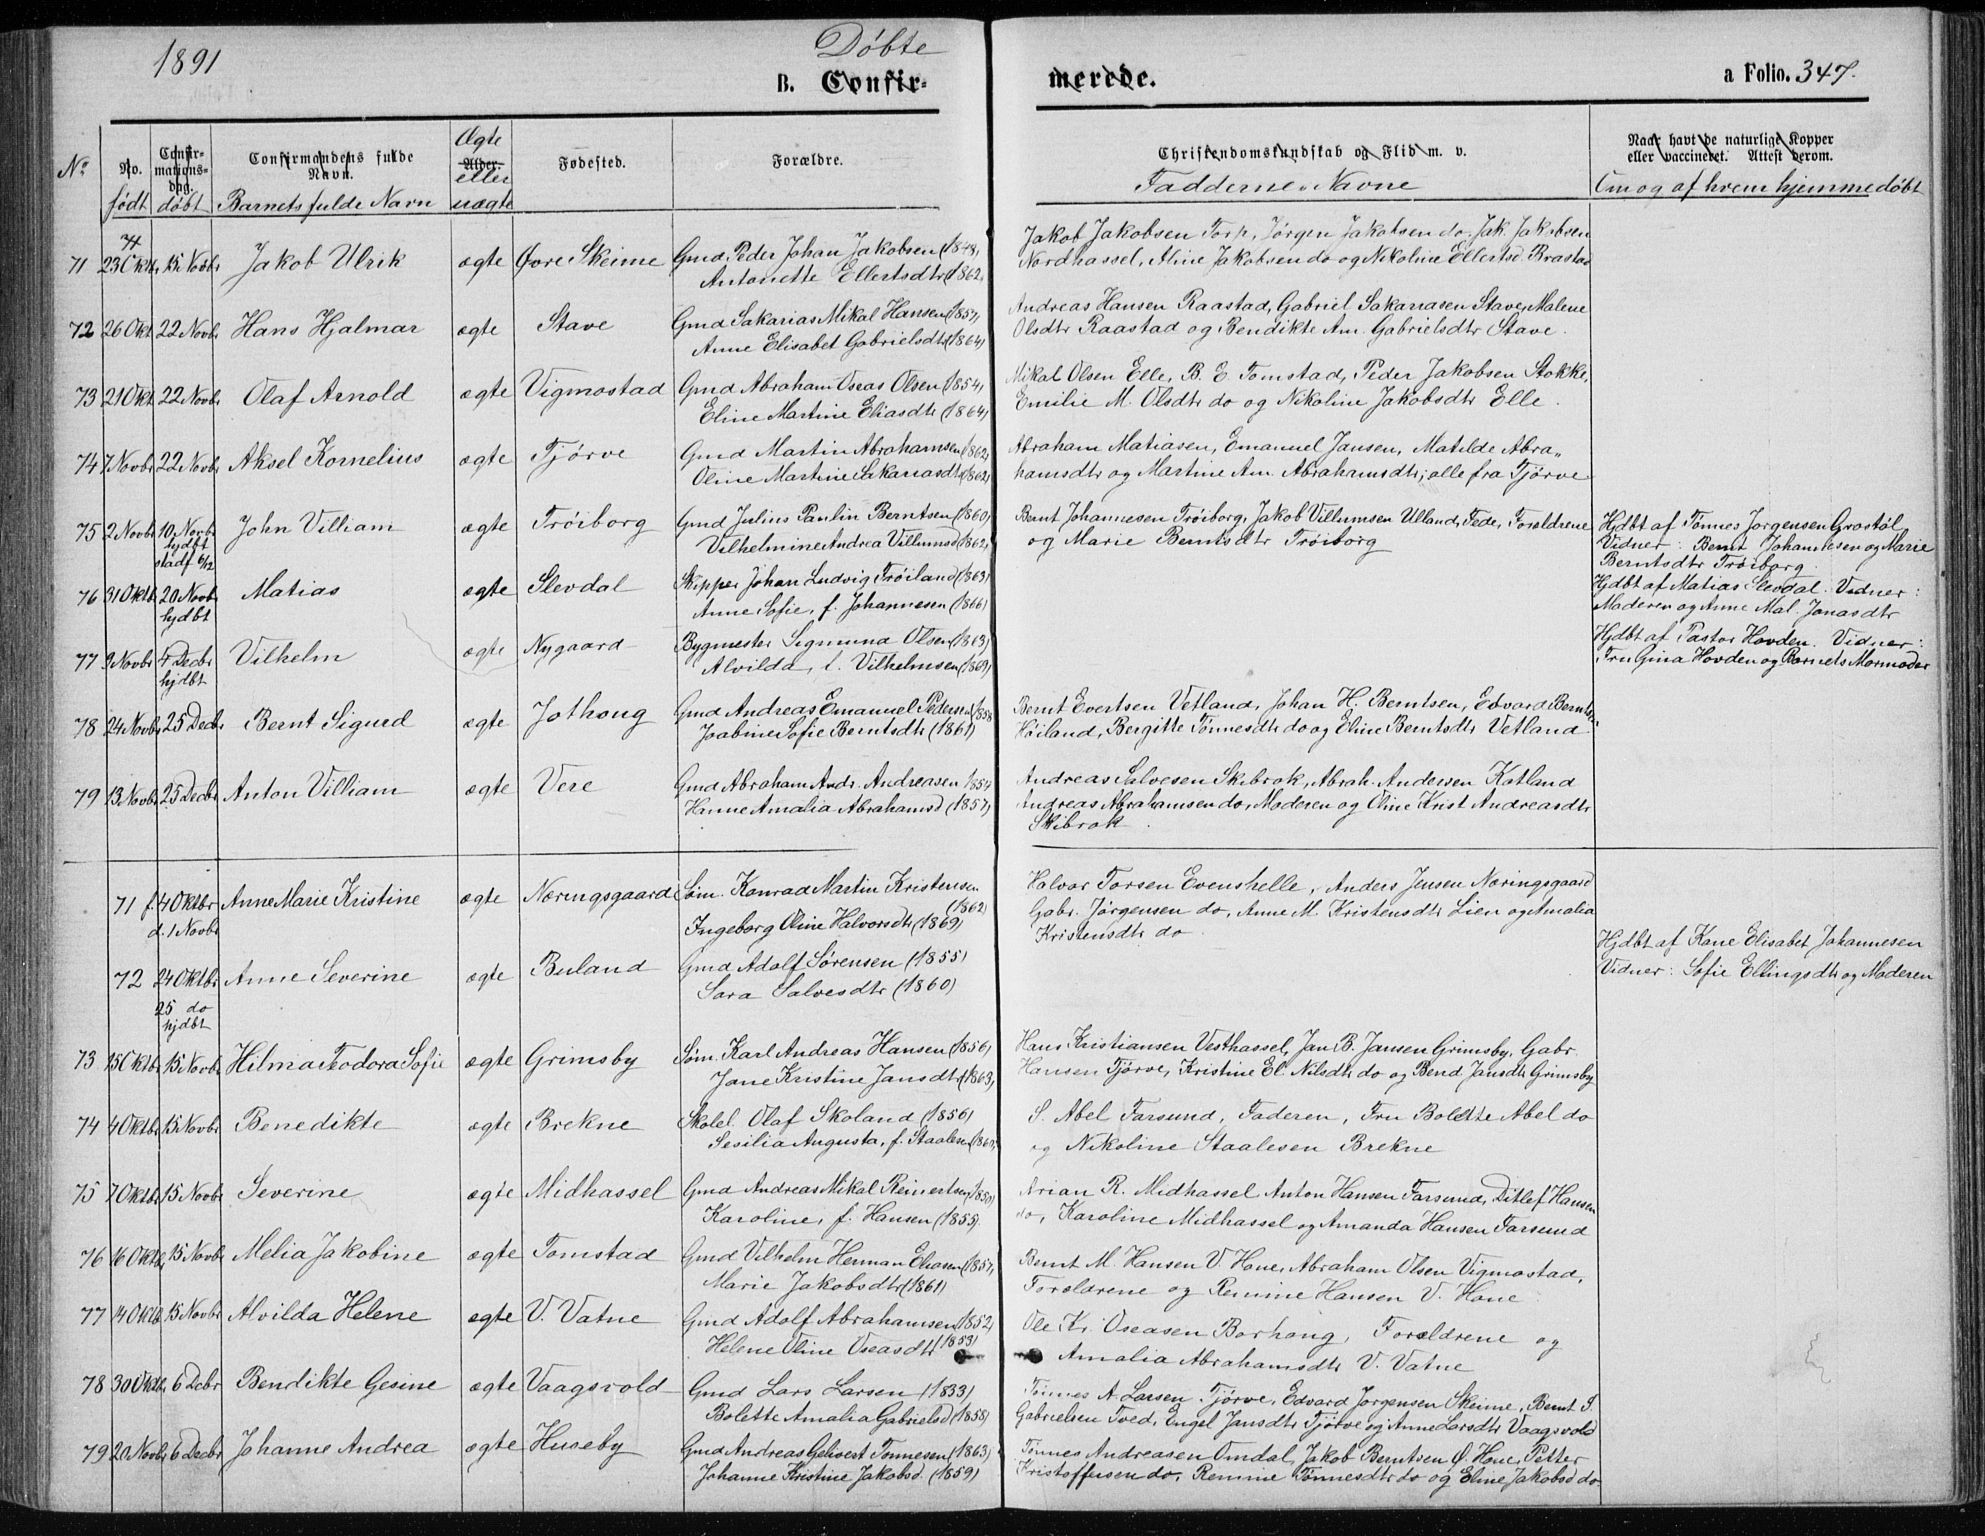 1891
Döbte
B. Confir-
merede.
a Folio. 347.
No
No.
født
Confir-
mations-
dag.
døbt
Confirmandens fulde
Navn.
Barnets fulde Navn
Ægte
Alder.
eller
uægte
Fødested.
Forældre.
Christendomskundskab og Flid m. v.
Faddernes Navne
Naar havt de naturlige Kopper
eller vaccineret. Attest derom.
Om og af hvem hjemmedøbt
71 23 Oktb 15 Novbr Jakob Ulrik ægte Øvre Skeime Gmd. Peder Johan Jakobsen (1848)
Antonette Ellertsdtr (1862)
Jakob Jakobsen Torp, Jørgen Jakobsen do, Jak. Jakobsen
Nordhassel, Aline Jakobsen do og Nikoline Ellertsd. Brastad
72 26 Okt 22 Novbr Hans Hjalmar ægte Stave Gmd Sakarias Mikal Hansen (1857)
Anne Elisabet Gabrielsdtr (1864)
Andreas Hansen Raastad, Gabriel Sakariasen Stave, Malene
Olsdtr Raastad og Bendikte Am. Gabrielsdtr Stave.
73 21 Okt 22 Novbr Olaf Arnold ægte Vigmostad Gmd Abraham Oseas Olsen (1854)
Eline Martine Eliasdtr (1864)
Mikal Olsen Elle, B. E. Tomstad, Peder Jakobsen Stokke,
Emilie M. Olsdtr do og Nikoline Jakobsdtr Elle.
74 7 Novbr 22 Novbr Aksel Kornelius ægte Tjørve Gmd Martin Abrahamsen (1862)
Oline Martine Sakariasdtr (1862)
Abraham Matiasen, Emanuel Jansen, Matilde Abra„
hamsdtr og Martine Am. Abrahamsdtr; alle fra Tjørve
75 2 Novbr 10 Novbr John Villiam ægte Trøiborg Gmd Julius Paulin Berntsen (1860)
hjdbt
stadf 6/12
Vilhelmine Andrea Villumsd (1862)
Bernt Johannesen Trøiborg, Jakob Villumsen Ulland, Fede, Forældrene
og Marie Berntsdtr Trøiborg
Hjdbt af Tønnes Jørgensen Grostøl
Vidner: Bernt Johannesen og Marie
Berntsdtr Trøiborg.
76 31 Oktb 20 Novb Matias ægte Slevdal Skipper Johan Ludvig Trøiland (1863)
hjdbt
Anne Sofie, f. Johannesen (1866)
Hjdbt af Matias Slevdal. Vidner:
Moderen og Anne Mal. Jonasdtr
77 9 Novbr 4 Decbr Vilhelm ægte Nygaard Bygmester Sigmund Olsen (1863)
hjdbt
Alvilda, f. Vilhelmsen (1869)
Hjdbt af Pastor Hovden. Vidner:
Fru Gina Hovden og Barnets Mormoder
78 24 Novbr 25 Decbr Bernt Sigurd ægte Jothong Gmd Andreas Emanuel Pedersen (1858
Jaabine Sofie Berntsdtr (1861)
Bernt Evertsen Vetland, Johan H. Berntsen, Edvard Berntsen
Høiland, Bergitte Tønnesdtr do og Eline Berntsdtr Vetland
79 13 Novbr 25 Decbr Anton Villiam ægte Vere Gmd Abraham Andr. Andreasen 1854
Hanne Amalia Abrahamsd (1857)
Andreas Salvesen Skibrok, Abrah. Andersen Katland
Andreas Abrahamsen do, Moderen og Oline Krist Andreasdtr
Skibrok.
71 f. 4 Oktbr Anne Marie Kristine ægte Næringsgaard Søm. Konrad Martin Kristensen
d. 1 Novbr
(1862)
Ingeborg Oline Halvorsdtr (1869)
Halvor Torsen Evenshelle, Anders Jensen Næringsgaard
Gabr. Jørgensen do, Anne M. Kristensdtr Lien og Amalia
Kristensdtr do.
72 24 Oktbr Anne Severine ægte Buland Gmd Adolf Sørensen (1855)
25 do
hjdbt
Sara Salvesdtr (1860)
Hjdbt af Kone Elisabet Johannesen
Vidner: Sofie Ellingsdtr og Moderen
73 15 Oktbr 15 Novbr Hilma Teodora Sofie ægte Grimsby Søm. Karl Andreas Hansen (1856)
Jane Kristine Jansdtr (1863)
Hans Kristiansen Vesthassel, Jan B. Jansen Grimsby, Gabr.
Hansen Tjørve, Kristine El. Nilsdtr do og Bend. Jansdtr Grimsby
74 4 Oktbr 15 Novbr Benedikte ægte Brekne Skolel. Olaf Skoland (1856)
Sesilia Augusta, f. Staalesen
S. Abel Farsund, Faderen, Fru Bolette Abel do
og Nikoline Staalesen Brekne
75 7 Oktbr 15 Novbr Severine ægte Midhassel Gmd Andreas Mikal Reinertsen
Karoline, f. Hansen (1855).
Arian R. Midhassel Anton Hansen Farsund, Ditlef Hansen
do, Karoline Midhassel og Amanda Hansen Farsund
76 16 Oktb 15 Novbr Melia Jakobine ægte Tomstad Gmd Vilhelm Herman Eliasen (1857)
Marie Jakobsdtr (1861)
Bernt M. Hansen V. Hone, Abraham Olsen Vigmostad,
Forældrene og Remine Hansen V. Hone
77 14 Oktb 15 Novbr Alvilda Helene ægte V. Vatne Gmd Adolf Abrahamsen (1852)
Helene Oline Oseasdtr (1853)
Ole Kr. Oseasen Borhong, Forældrene og
Amalia Abrahamsdtr V. Vatne
78 30 Oktb 6 Decbr Bendikte Gesine ægte Vaagsvold Gmd Lars Larsen (1833)
Bolette Amalia Gabrielsd (1858)
Tønnes A. Larsen Tjørve, Edvard Jørgensen Skeime, Bernt S.
Gabrielsen Tved, Engel Jansdtr Tjørve og Anne Larsdtr Vaagsvold
79 20 Novbr 6 Decbr Johanne Andrea ægte Huseby Gmd Andreas Gelivest Tønnesen (1863)
Johanne Kristine Jakobsd. (1859)
Tønnes Andreasen Omdal, Jakob Berntsen Ø. Hone, Petter
Kristoffersen do, Remine Tønnesdtr do og Eline Jakobsd do